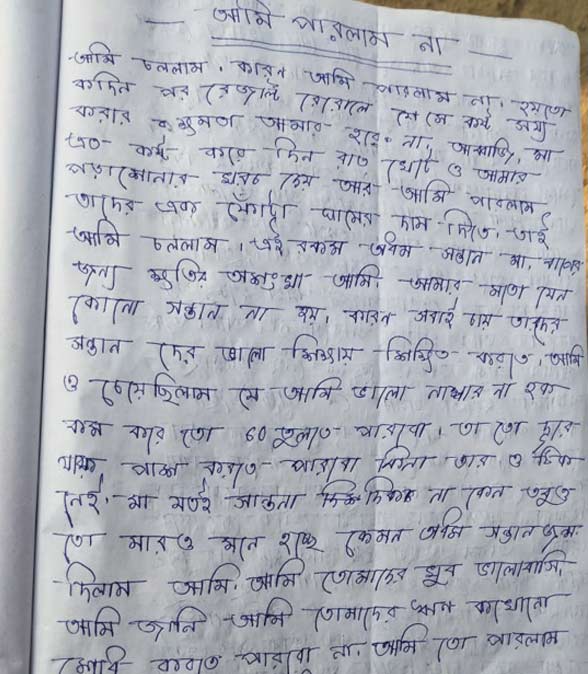 আমি পারলাম না
আমি চললাম, কারন আমি পারলাম না, হয়তো
কদিন পর রেজাল্ট বেরোলে যে সে কষ্ট সহ্য
করার ক্ষমতা আমার হবে না, মা
এত কষ্ট করে দিন রাত খেটে ও আমার
পড়াশোনার খরচ দেয় আর আমি পারলাম
তাদের এক ফোঁটা ঘামের দাম দিতে, তাই
আমি চললাম, এই রকম অধম সন্তান মা, বাপের
জন্য ক্ষতির আমি, আমার মতো যেন
কোনো সন্তান না হয়, কারন সবাই চায় তাদের
সন্তান দের ভালো শিক্ষায় শিক্ষিত করতে, আমি
ও চেয়েছিলাম যে আমি ভালো নাম্বার না হক
কম করে তো 60 তুলতে পারবো, তা তো দূরে
যাক পাশ করতে পারবো কিনা তার ও ঠিক
নেই, মা যতই সান্তনা দিক না কেন তবুও
তো মার ও মনে হচ্ছে কেমন অধম সন্তান জন্ম
দিলাম আমি, আমি তোমাদের খুব ভালোবাসি,
আমি জানি আমি তোমাদের ঋন কখোনো
শোধ করতে পারবো না, আমি তো পারলাম